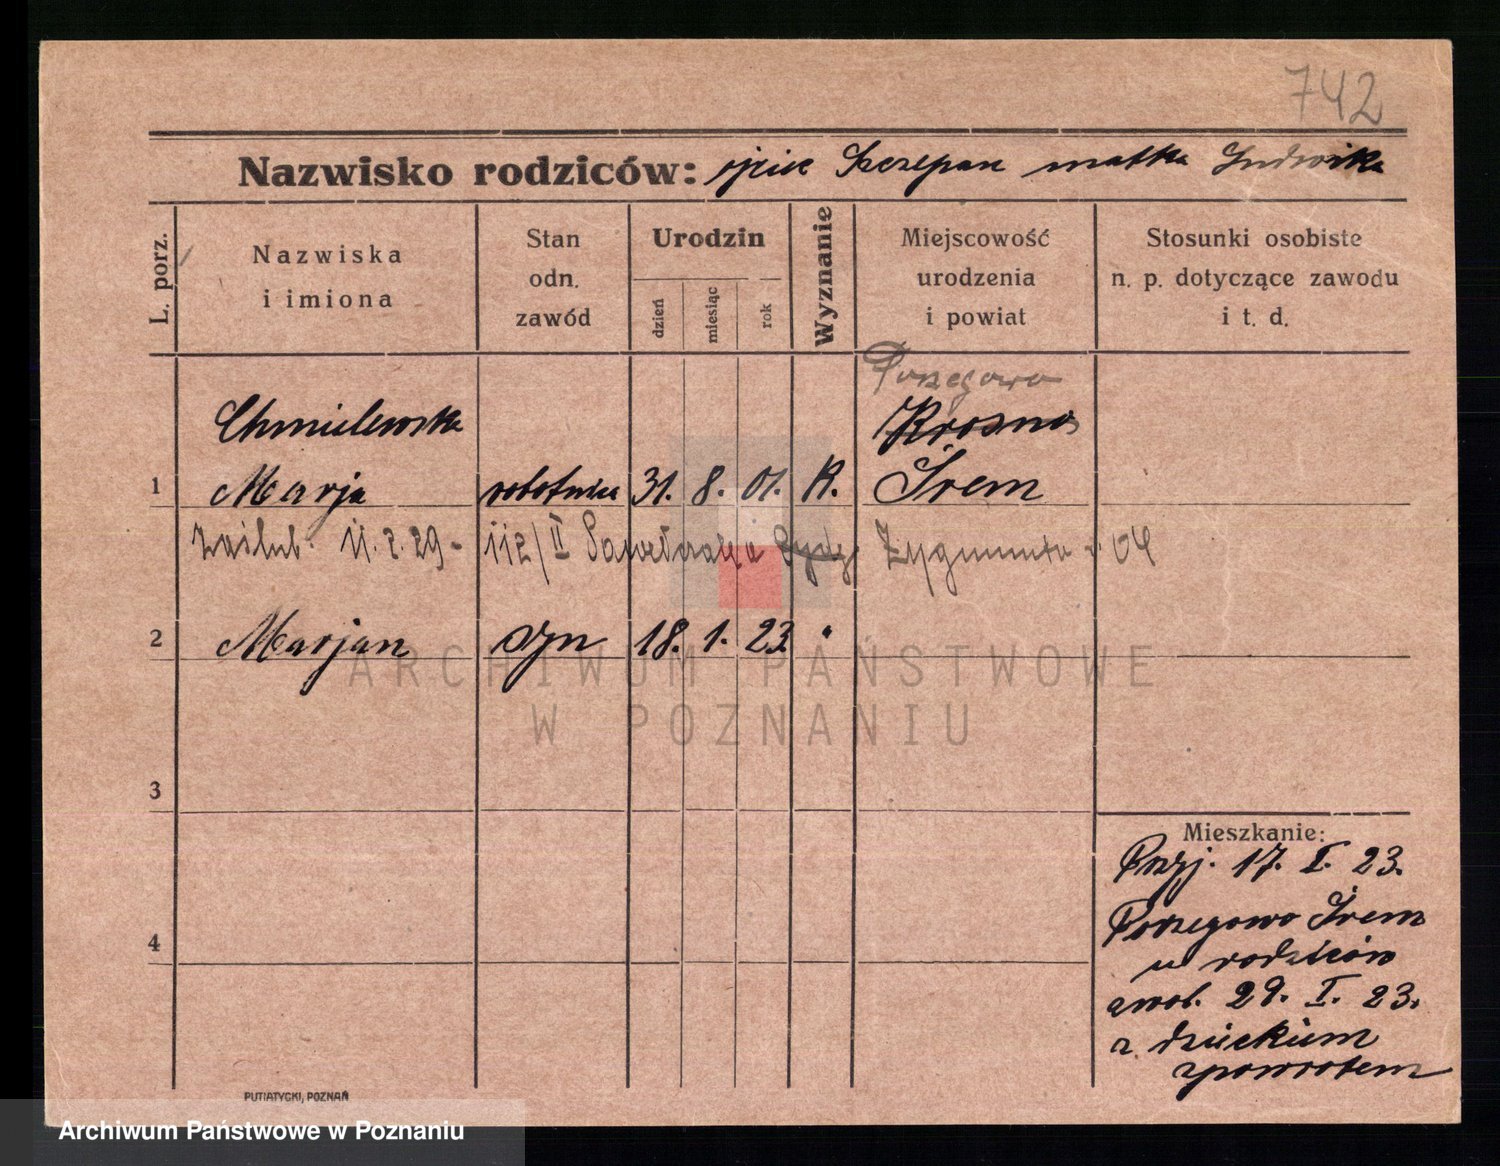 742
Nazwisko rodziców: ojciec Szczepan matka Ludwika
L. porz.
Nazwiska i imiona
Stan odn. zawód
Urodzin
dzień
miesiąc
rok
Wyznanie
Miejscowość urodzenia i powiat
Stosunki osobiste n. p. dotyczące zawodu i t. d.
Porzegowo
Chmielewska Krosno
1 Marja robotnica 31. 8. 01. K. Śrem
zaślub. 11. 2. 29 - 112/II Zygmunta 04
2 Marjan syn 18. 1. 23. "
ARCHIWUM PAŃSTWOWE
W POZNANIU
3
Mieszkanie:
Przyj. 17. I. 23.
Porzegowo Śrem
u rodziców
4
29. I. 23.
z dzieckiem
zpowrotem
PUTIATYCKI, POZNAŃ
Archiwum Państwowe w Poznaniu